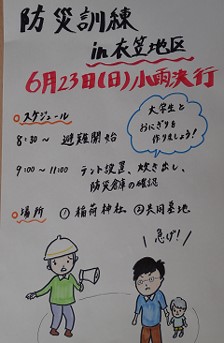 防災訓練
in 衣笠地区
6月23日(日)小雨決行
○スケジュール
8:30~ 避難開始
9:00~11:00 テント設置、炊き出し、
防災倉庫の確認
大学生と
おにぎりを
作りましょう!
○場所 ①稲荷神社 ②共同墓地
急げ!